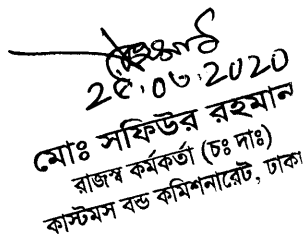 ২৫.০৩.2020
মোঃ সফিউর রহমান
রাজস্ব কর্মকর্তা (চঃ দাঃ)
কাস্টমস বন্ড কমিশনারেট, ঢাকা